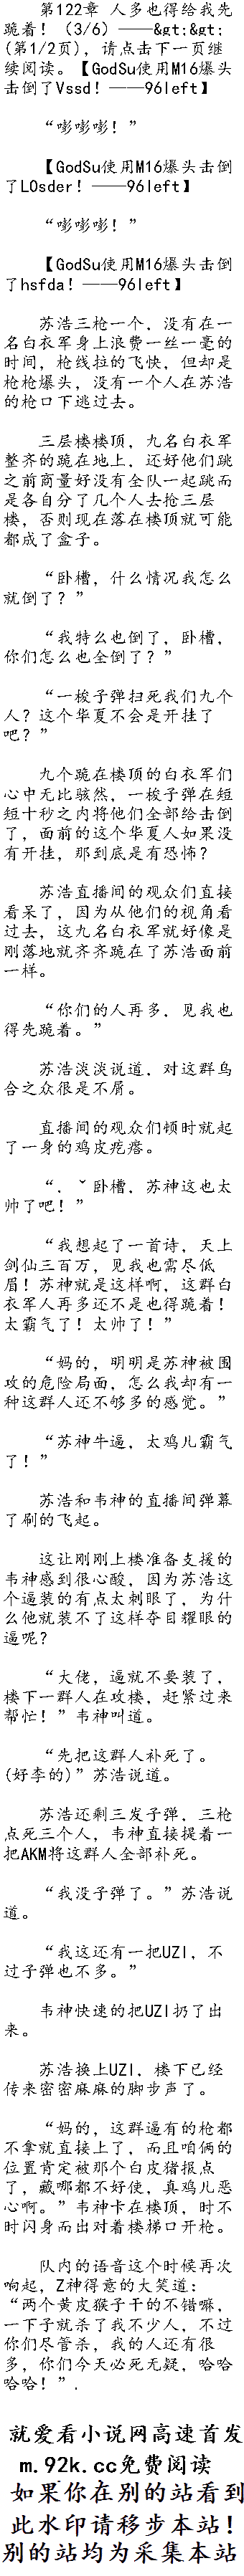 第122章 人多也得给我先
跪着！（3/6）——&gt;&gt;
(第1/2页)，请点击下一页继
续阅读。【GodSu使用M16爆头
击倒了Vssd！——96left】
“嘭嘭嘭！”
【GodSu使用M16爆头击倒
了L0sder！——96left】
“嘭嘭嘭！”
【GodSu使用M16爆头击倒
了hsfda！——96left】
苏浩三枪一个，没有在一
名白衣军身上浪费一丝一毫的
时间，枪线拉的飞快，但却是
枪枪爆头，没有一个人在苏浩
的枪口下逃过去。
三层楼楼顶，九名白衣军
整齐的跪在地上，还好他们跳
之前商量好没有全队一起跳而
是各自分了几个人去抢三层
楼，否则现在落在楼顶就可能
都成了盒子。
“卧槽，什么情况我怎么
就倒了？”
“我特么也倒了，卧槽，
你们怎么也全倒了？”
“一梭子弹扫死我们九个
人？这个华夏不会是开挂了
吧？”
九个跪在楼顶的白衣军们
心中无比骇然，一梭子弹在短
短十秒之内将他们全部给击倒
了，面前的这个华夏人如果没
有开挂，那到底是有恐怖？
苏浩直播间的观众们直接
看呆了，因为从他们的视角看
过去，这九名白衣军就好像是
刚落地就齐齐跪在了苏浩面前
一样。
“你们的人再多，见我也
得先跪着。”
苏浩淡淡说道，对这群乌
合之众很是不屑。
直播间的观众们顿时就起
了一身的鸡皮疙瘩。
“．ˇ卧槽，苏神这也太
帅了吧！”
“我想起了一首诗，天上
剑仙三百万，见我也需尽低
眉！苏神就是这样啊，这群白
衣军人再多还不是也得跪着！
太霸气了！太帅了！”
“妈的，明明是苏神被围
攻的危险局面，怎么我却有一
种这群人还不够多的感觉。”
“苏神牛逼，太鸡儿霸气
了！”
苏浩和韦神的直播间弹幕
了刷的飞起。
这让刚刚上楼准备支援的
韦神感到很心酸，因为苏浩这
个逼装的有点太刺眼了，为什
么他就装不了这样夺目耀眼的
逼呢？
“大佬，逼就不要装了，
楼下一群人在攻楼，赶紧过来
帮忙！”韦神叫道。
“先把这群人补死了。
(好李的)”苏浩说道。
苏浩还剩三发子弹，三枪
点死三个人，韦神直接提着一
把AKM将这群人全部补死。
“我没子弹了。”苏浩说
道。
“我这还有一把UZI，不
过子弹也不多。”
韦神快速的把UZI扔了出
来。
苏浩换上UZI，楼下已经
传来密密麻麻的脚步声了。
“妈的，这群逼有的枪都
不拿就直接上了，而且咱俩的
位置肯定被那个白皮猪报点
了，藏哪都不好使，真鸡儿恶
心啊。”韦神卡在楼顶，时不
时闪身而出对着楼梯口开枪。
队内的语音这个时候再次
响起，Z神得意的大笑道：
“两个黄皮猴子干的不错嘛，
一下子就杀了我不少人，不过
你们尽管杀，我的人还有很
多，你们今天必死无疑，哈哈
哈哈！”．
就爱看小说网高速首发
m.92k.cc免费阅读
如果你在别的站看到
此水印请移步本站！
别的站均为采集本站